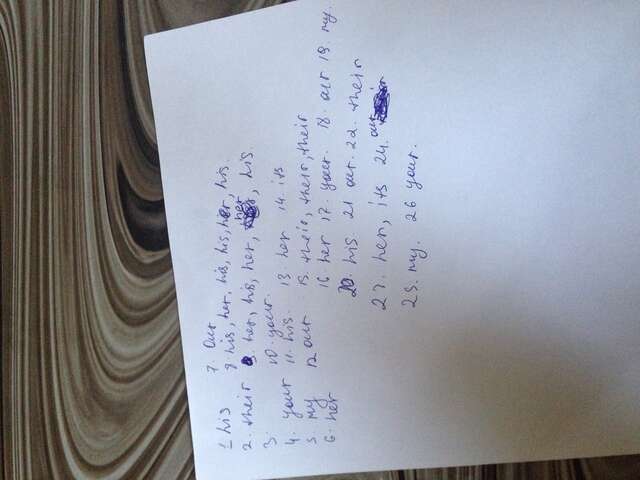 7. Our
1 his 8. his, her, his, his, her, his.
2. their 9. her, his, her, her, his.
3. 10. your.
4. your 11. his. 13. her 14. its
5. my 12. our 15. their, their, their
6. her 16. her 17. your. 18. our 19. my.
20. his 21 our. 22. their
23. her, its 24. our
25. my. 26 your.